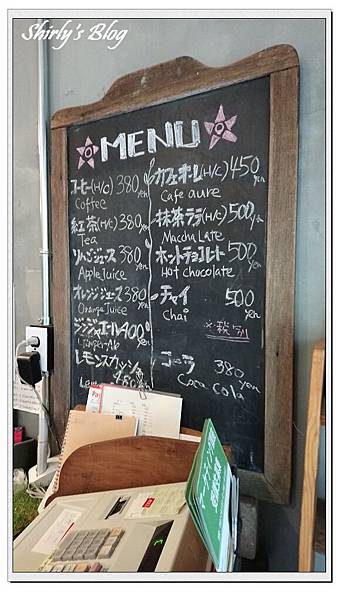 Shirly's Blog
MENU
コーヒー(H/C) 380yen
Coffee
紅茶(H/C) 380yen
Tea
リンゴジュース 380yen
Apple Juice
オレンジジュース 380yen
Orange Juice
ジンジャエール 400yen
レモンスカッシュ
480
カフェオーレ(H/C) 450yen
Cafe aure
抹茶ラテ(H/C) 500yen
Maccha Late
ホットチョコレート 500yen
Hot chocolate
チャイ 500yen
Chai
※税別
コーラ 380yen
Coca Cola